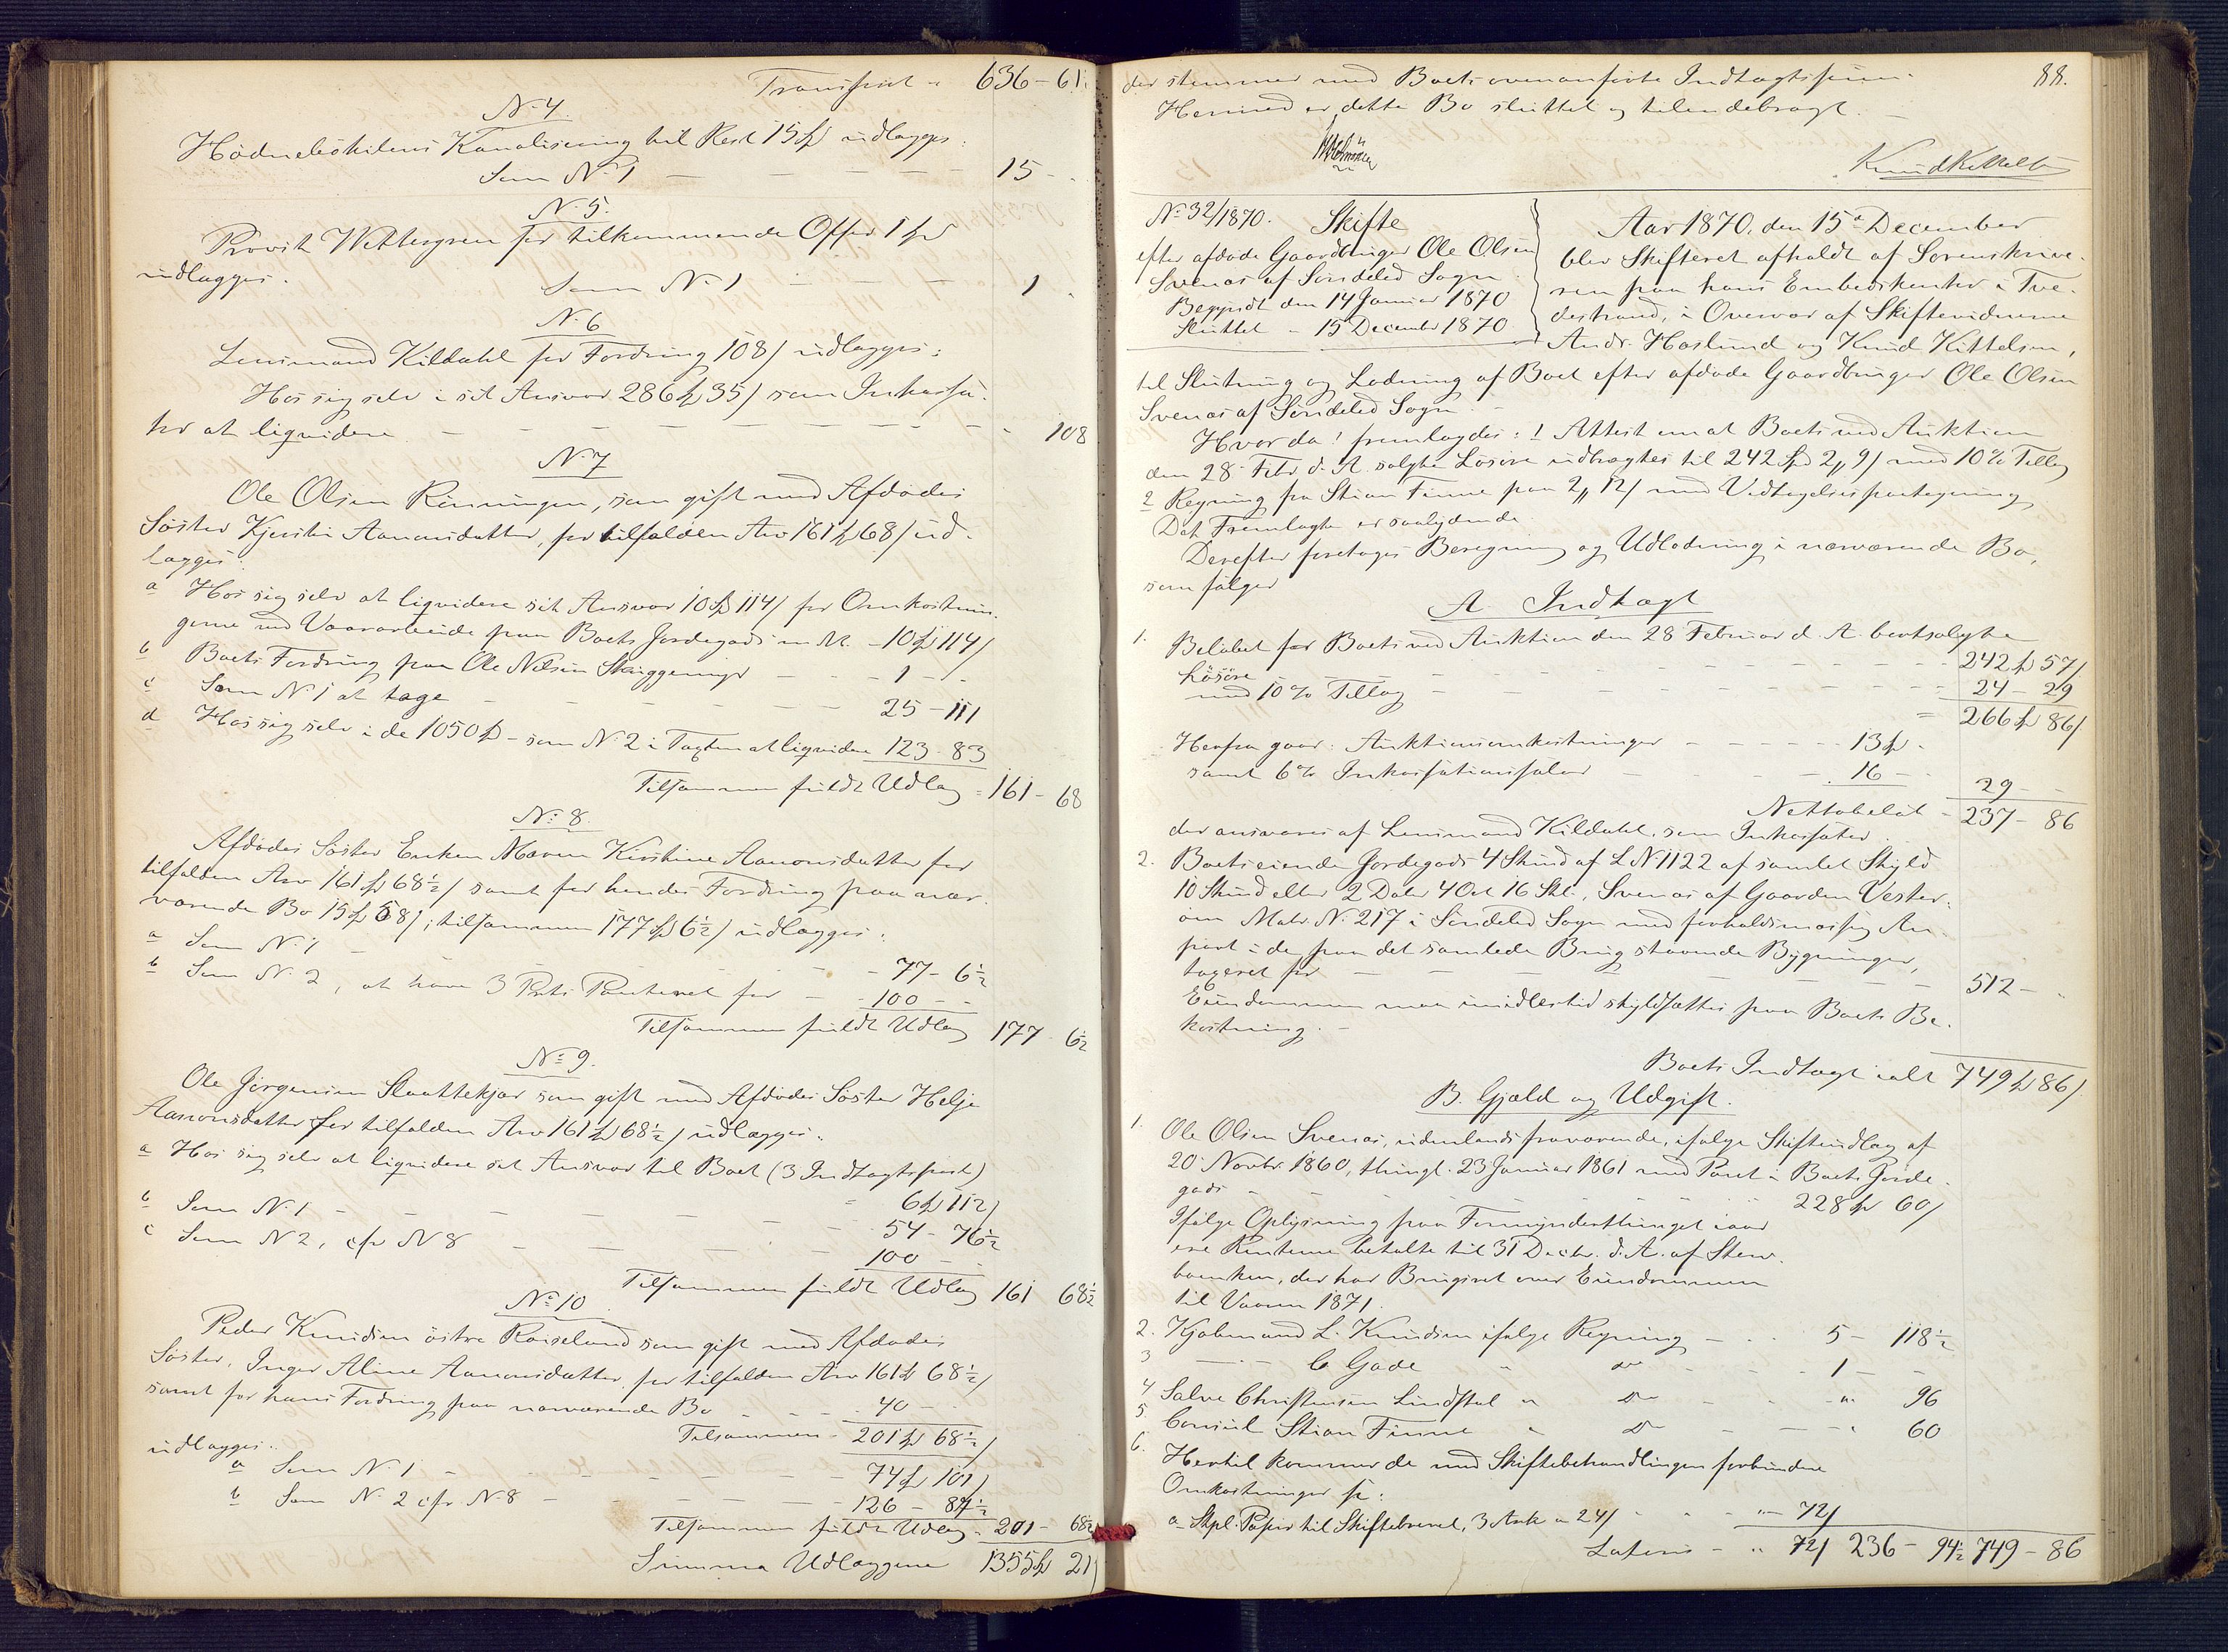 Transport " 636 - 61.
N. 4.
Hødnebøkilens Kanalisering til Rest 15 Spd udlægges:
Som N. 1 — — — — — 15 - .
N. 5.
Provst Wettergren for tilkommende Offer 1 Spd
udlægges.
Som N. 1 — — — 1 .
N. 6
Lensmand Kildahl for Fordring 108/ udlægges:
Hos sig selv i sit Ansvar 286 Spd 35/ som Inkassa-
tor at liqvidere — — — — — " 108
N. 7
Ole Olsen Rønningen, som gift med Afdødes
Søster Kjerstin Aanonsdatter, for tilfalden Arv 161 Spd 68/ ud-
lægges:
a Hos sig selv at liqvidere sit Ansvar 10 Spd 114/ for Omkostnin-
gerne ved Vaararbeide paa Boets Jordegods m. M. - 10 Spd 114/
b Boets Fordring paa Ole Nilsen — - 1 - " -
c Som N. 1 at tage — — — — 25 - 111
d Hos sig selv i de 1050 Spd - som N. 2 i Tagten at liqvidere 123 - 83
Tilsammen fuldt Udlæg = 161 - 68
No 8.
Afdødes Søster Enken Maren Kirstine Aanonsdatter for
tilfalden Arv 161 Spd 68½/ samt for hendes Fordring paa nær-
værende Bo 15 Spd 58/; tilsammen 177 Spd 6½/ udlægges:
a Som N. 1 — - 77 - 6½
b Som N. 2, at have 3 Prts Panteret for - - 100 - -
Tilsammen fuldt Udlæg 177 - 6½
No 9.
Ole Jørgensen Slaattekjær som gift med Afdødes Søster Helje
Aanonsdatter for tilfalden Arv 161 Spd 68½/ udlægges:
a Hos sig selv at liqvidere sit Ansvar til Boet (3 Indtægtspost)
6 Spd 112/
b Som N. 1 - — — — — 54 - 76½
c Som N 2, cfr N 8 — — — 100 - -
Tilsammen fuldt Udlæg 161 68½
No 10
Peder Knudsen østre Røiseland som gift med Afdødes
Søster, Inger Aline Aanonsdatter for tilfalden Arv 161 Spd 68½/
samt for hans Fordring paa nærværende Bo - - - 40 - -
Tilsammen - 201 Spd 68½/
udlægges:
a Som N. 1 - — — — — 74 Spd 101/
b Som N. 2 cfr N. 8 — — — 126 - 87½
Tilsammen fuldt Udlæg - 201 - 68½
Summa Udlæggene 1355 Spd 21/
88.
der stemmer med Boets ovenanførte Indtægtssum.
Hermed er dette Bo sluttet og tilendebragt. —
Knud Kittelsen
No 32/1870. Skifte
efter afdøde Gaardbruger Ole Olsen
Svenas af Søndeled Sogn
Begyndt den 14 Januar 1870
Sluttet - 15 December 1870
Aar 1870, den 15de December
blev Skifteret afholdt af Sorenskrive-
ren paa hans Embedskontor i Tve-
destrand, i Overvær af Skiftevidnerne
Andr. Haslund og Knud Kittelsen,
til Slutning og Lodning af Boet efter afdøde Gaardbruger Ole Olsen
Svenas af Søndeled Sogn. -
Hvorda! fremlagdes: 1 Attest om at Boets ved Auktion
den 28 Febr d. A. solgte Løsøre udbragtes til 242 Spd 2,, 9/ med 10% Tillæg
2 Regning fra Stian Finne paa 2,, 12/ med Vedtagelsespaategning
Det Fremlagte er saalydende
Derefter foretoges Beregning og Udlodning i nærværende Bo,
som følger
A. Indtægt
1. Beløbet for Boets ved Auktion den 28 Februar d. A. bortsolgte
Løsøre - - - - - - - 242 Spd 57/
med 10% Tillæg - - - - - 24 - 29
= 266 Spd 86/
Herfra gaar: Auktionsomkostninger - - - - - 13 Spd "
samt 6% Inkassationssalær - - - 16 - " 29 - -
Nettobeløb - 237 - 86
der ansvares af Lensmand Kildahl, som Inkassator.
2. Boets eiende Jordegods 4 Skind af L N 1122 af samlet Skyld
10 Skind eller 2 Daler 4 Ort 16 Skl., Svenas af Gaarden Vester-
om Matr. N. 217 i Søndeled Sogn med forholdsmæssig An-
part i de paa det samlede Brug staaende Bygninger,
taxeret for — — — — — 512 - "
Eiendommen maa imidlertid skyldsættes paa Boets Be-
kostning. -
Boets Indtægt ialt 749 Spd 86/
B. Gjæld og Udgift.
1. Ole Olsen Svenas, udenlands fraværende, ifølge Skifteudlæg af
20 Novbr. 1860, thingl. 23 Januar 1861 med Pant i Boets Jorde-
gods - - - - - - 228 Spd 60/
Ifølge Oplysning paa Formynderthinget iaar
ere Renterne betalte til 31 Decbr. d. A. af Sterv-
boenken, der har Brugsret over Eiendommen
til Vaaren 1871.
2. Kjøbmand L. Knudsen ifølge Regning - - - 5 - 118½
3 —"— C Gade " do - - - 1 - -
4 Salve Christensen Lindstøl " do - - - " - 96
5. Consul Stian Finne " do - — - " 60
6. Hertil kommer de med Skiftebehandlingen forbundne
Omkostninger for:
a Stpl. Papir til Skiftebrevet, 3 Ark a 24/ - - - " - 72/
Lateris - " 72/ 236 - 94½ 749 - 86